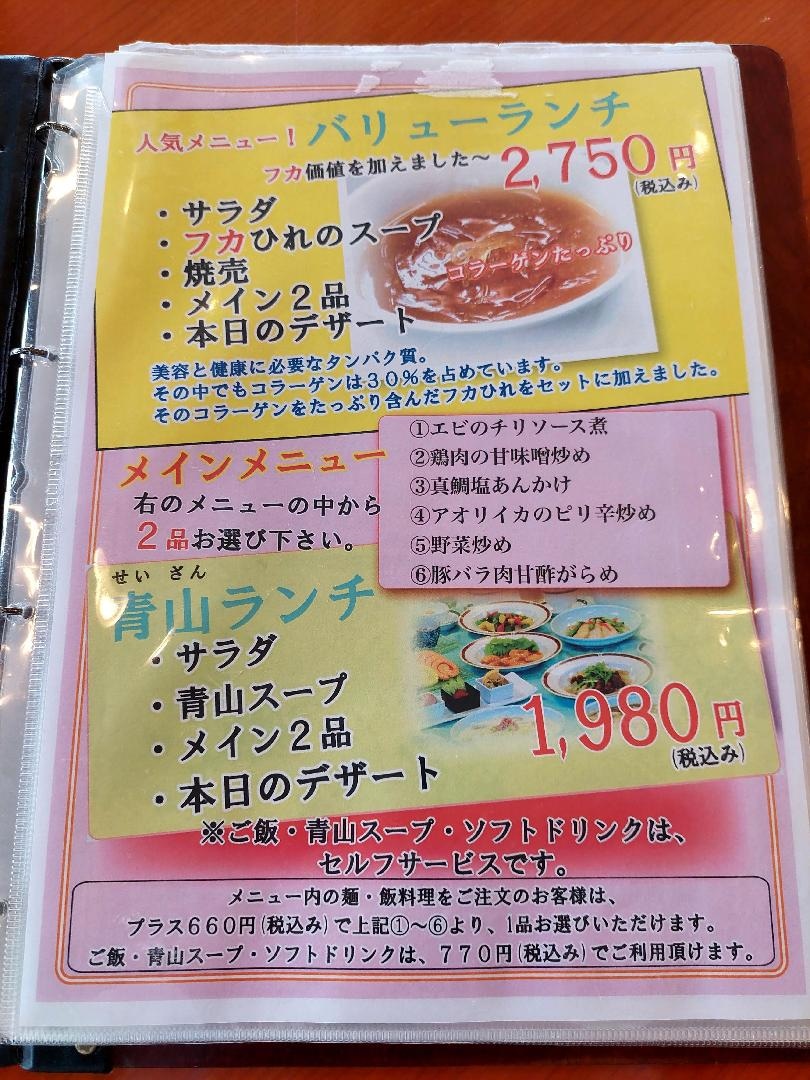 人気メニュー！バリューランチ
フカ価値を加えました～ 2,750円
(税込み)
・サラダ
・フカひれのスープ
・焼売
・メイン２品
・本日のデザート
コラーゲンたっぷり
美容と健康に必要なタンパク質。
その中でもコラーゲンは３０％を占めています。
そのコラーゲンをたっぷり含んだフカひれをセットに加えました。
メインメニュー
右のメニューの中から
２品お選び下さい。
①エビのチリソース煮
②鶏肉の甘味噌炒め
③真鯛塩あんかけ
④アオリイカのピリ辛炒め
⑤野菜炒め
⑥豚バラ肉甘酢がらめ
せい ざん
青山ランチ
・サラダ
・青山スープ
・メイン２品
・本日のデザート
1,980円
(税込み)
※ご飯・青山スープ・ソフトドリンクは、
セルフサービスです。
メニュー内の麺・飯料理をご注文のお客様は、
プラス６６０円(税込み)で上記①～⑥より、1品お選びいただけます。
ご飯・青山スープ・ソフトドリンクは、７７０円(税込み)でご利用頂けます。